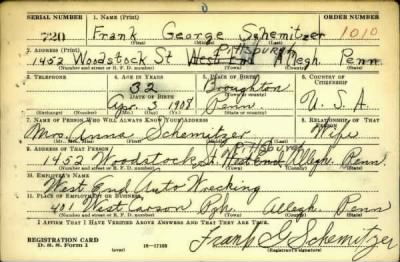 SERIAL NUMBER 1. NAME (Print) ORDER NUMBER
720 Frank George Schemitzer 1010
(First) (Middle) (Last)
2. ADDRESS (Print) Pittsburgh
1452 Woodstock St West End Allegh. Penn.
(Number and street or R. F. D. number) (Town) (County) (State)
3. TELEPHONE 4. AGE IN YEARS 5. PLACE OF BIRTH 6. COUNTRY OF CITIZENSHIP
32 Broughton
DATE OF BIRTH
Apr. 3 1908 Penn. U.S.A.
(Exchange) (Number) (Mo.) (Day) (Yr.) (State or country)
7. NAME OF PERSON WHO WILL ALWAYS KNOW YOUR ADDRESS 8. RELATIONSHIP OF THAT PERSON
Mrs. Anna Schemitzer Wife
(Mr., Mrs., Miss) (First) (Middle) (Last)
9. ADDRESS OF THAT PERSON Pittsburgh
1452 Woodstock St. West End Allegh. Penn.
(Number and street or R. F. D. number) (Town) (County) (State)
10. EMPLOYER'S NAME
West End Auto Wrecking
11. PLACE OF EMPLOYMENT OR BUSINESS
401 West Carson Pgh. Allegh. Penn
(Number and street or R. F. D. number) (Town) (County) (State)
I AFFIRM THAT I HAVE VERIFIED ABOVE ANSWERS AND THAT THEY ARE TRUE.
REGISTRATION CARD
D. S. S. Form 1 (over) 16—17105 Frank G Schemitzer
(Registrant's signature)